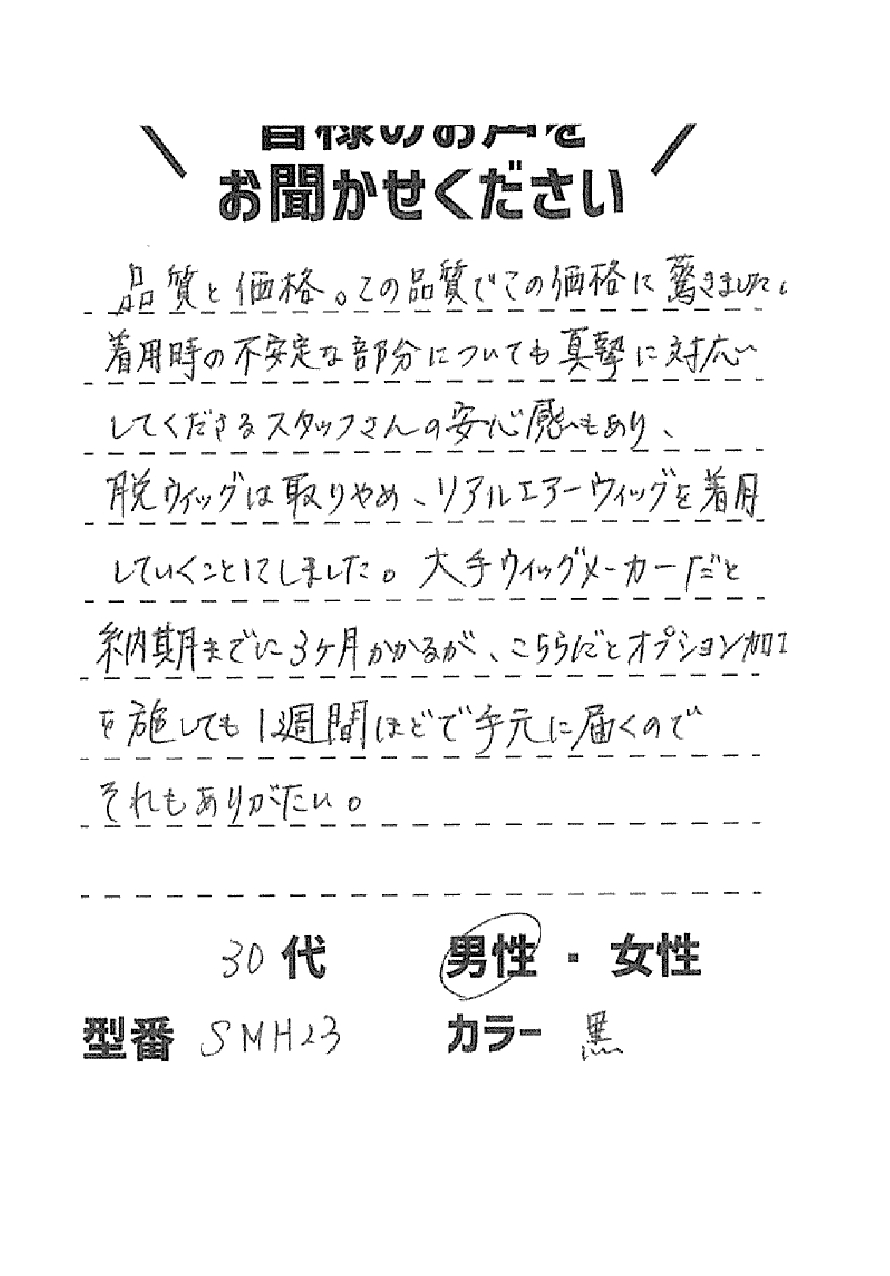 皆様のお声を
お聞かせください
品質と価格。この品質でこの価格に驚きました。
着用時の不安定な部分についても真摯に対応
してくださるスタッフさんの安心感もあり、
脱ウィッグは取りやめ、リアルエアーウィッグを着用
していくことにしました。大手ウィッグメーカーだと
納期までに3ヶ月かかるが、こちらだとオプション加工
を施しても1、2週間ほどで手元に届くので
それもありがたい。
30代 男性・女性
型番 SMH23 カラー 黒